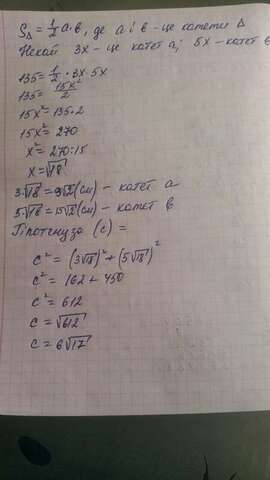 S△ = 1/2 a·в, де а і в - це катети △
Нехай 3x - це катет а, 5x - катет в
135 = 1/2 · 3x · 5x
135 = 15x²/2
15x² = 135·2
15x² = 270
x² = 270:15
x = √18
3·√18 = 9√2 (см) - катет а
5·√18 = 15√2 (см) - катет в
Гіпотенуза (с) =
c² = (3√18)² + (5√18)²
c² = 162 + 450
c² = 612
c = √612
c = 6√17